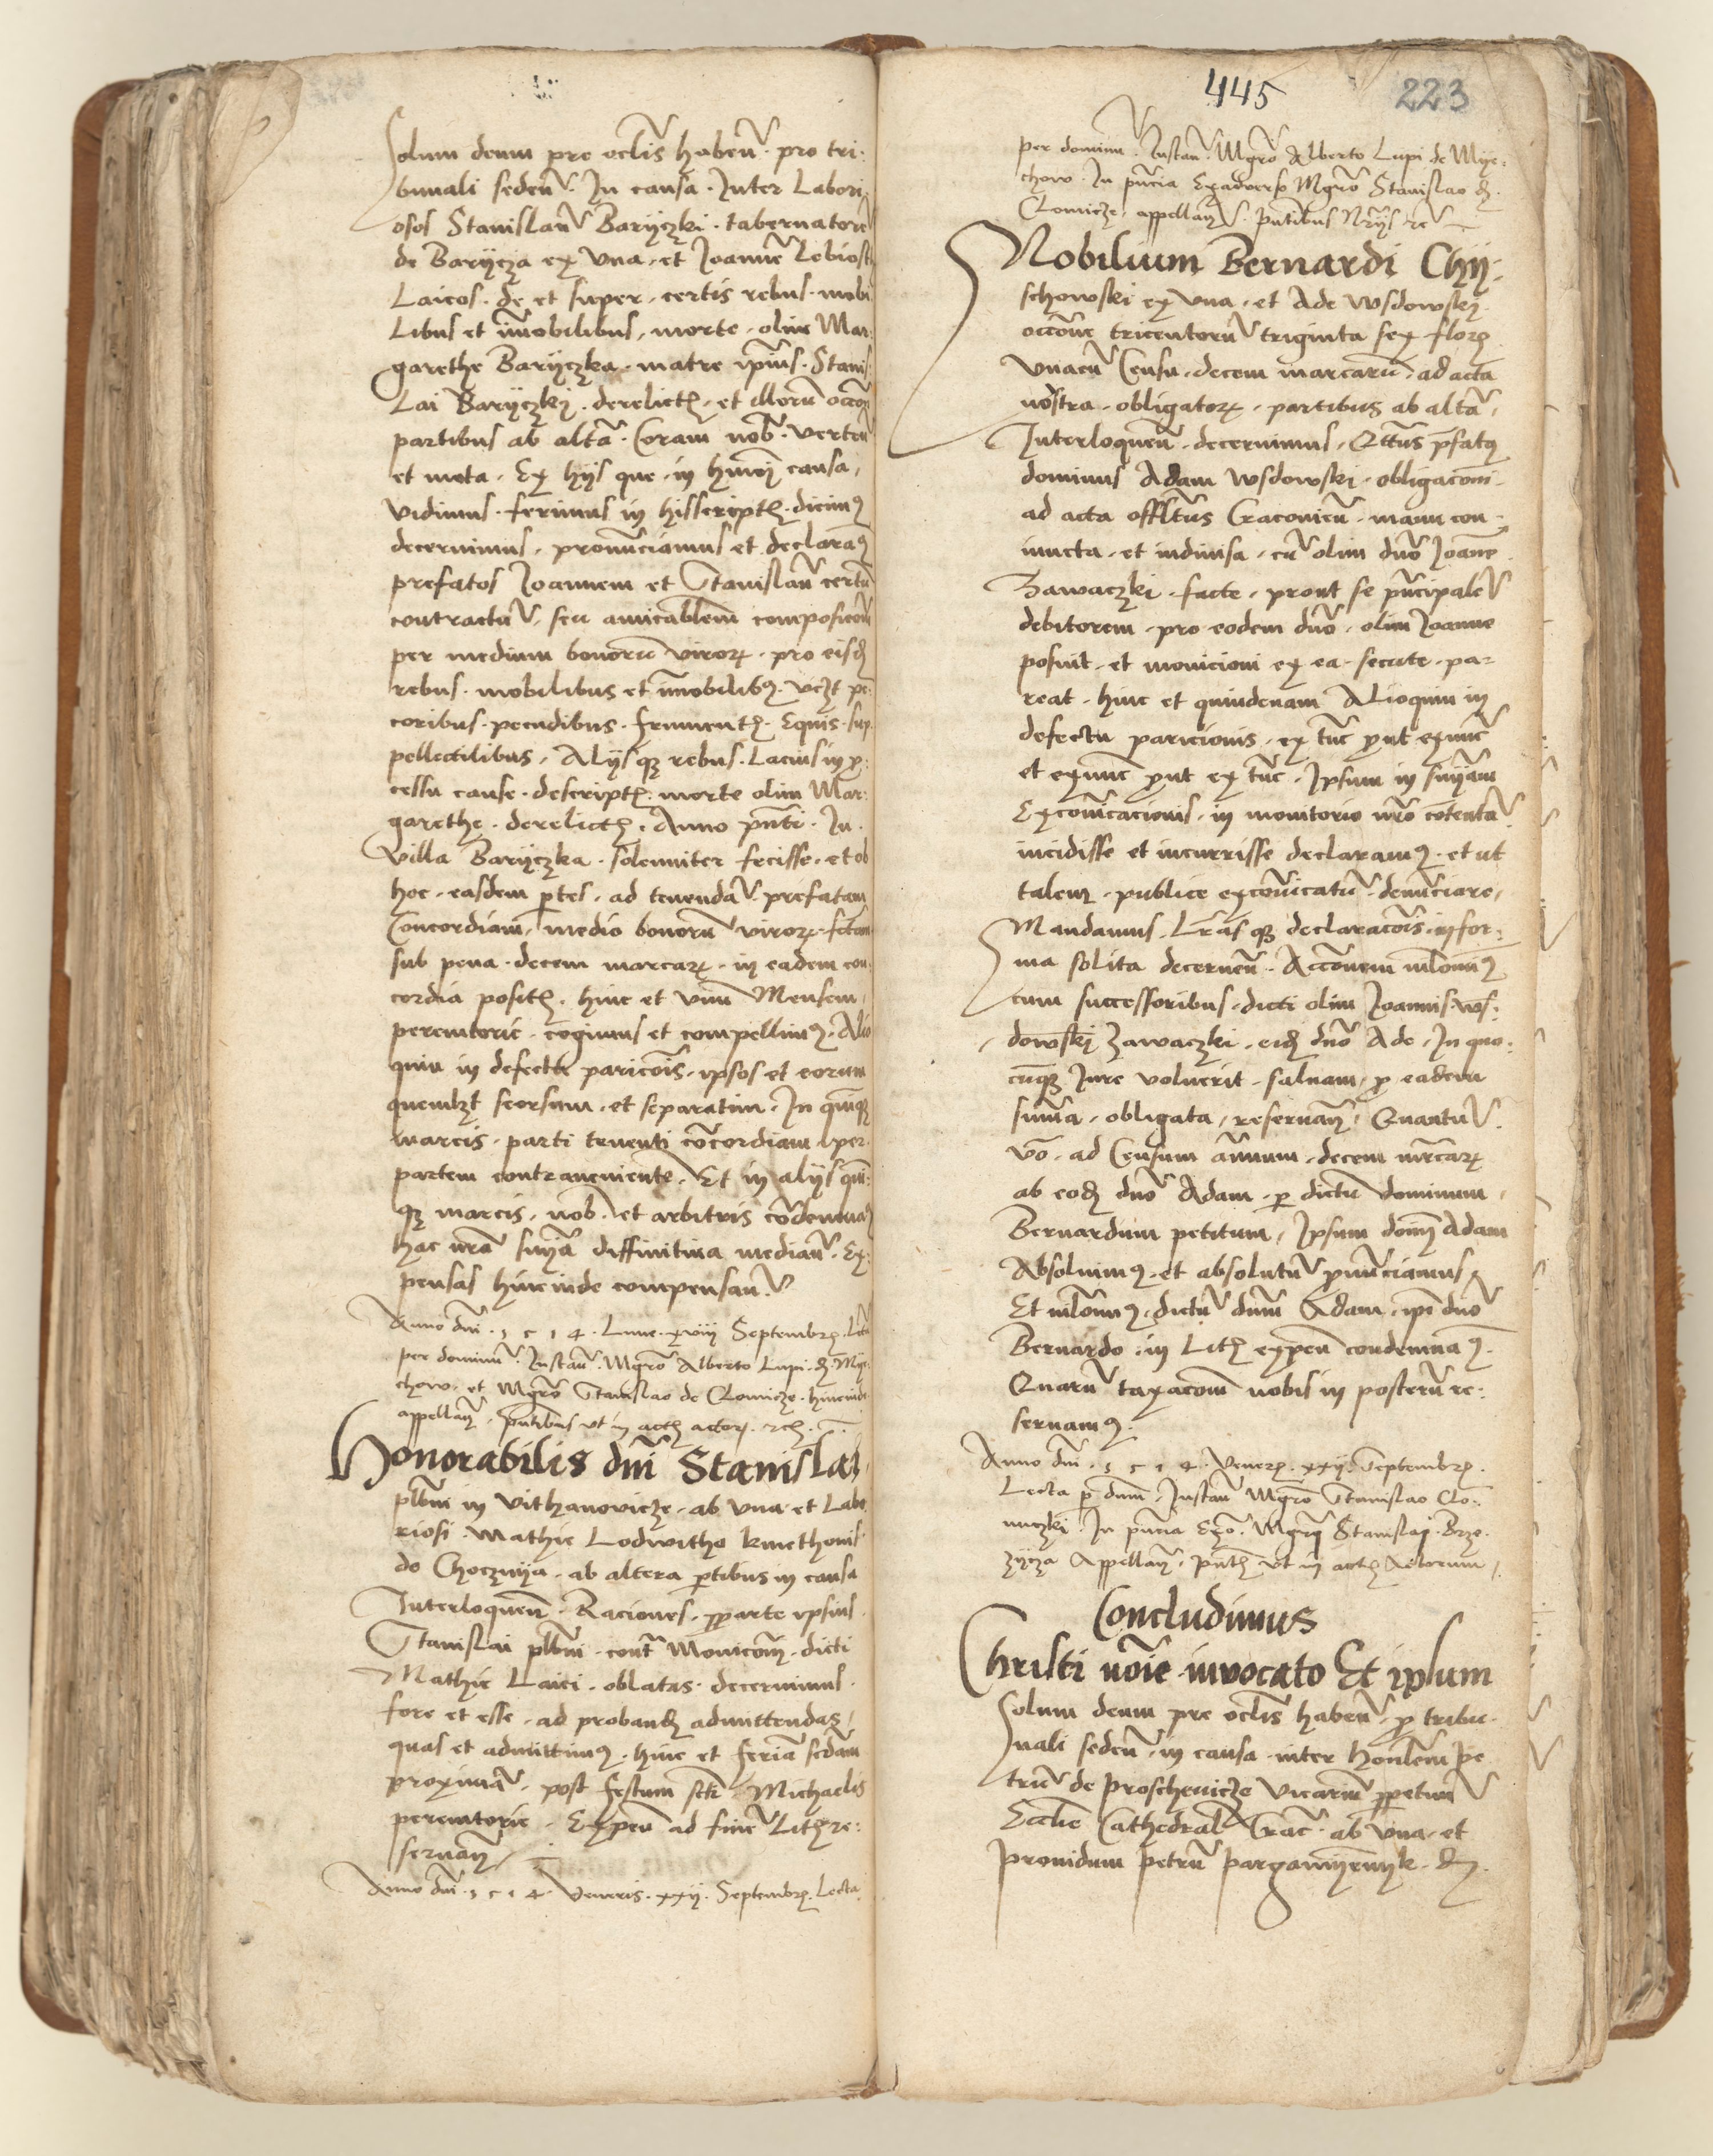 Solum deum pre oclis haben̄ · pro tri:
bunali seden̄ · In causa · Inter Labori:
osos Stanislau̅ Baryczki · tabernatore̅
de Barycza ex vna · et Joanne̅
Laicos · de et super · certis rebus · mobi
libus et im̅obilibus, morte · olim Mar:
garethe Baryczka · matre ip̅ius · Stanis
Lai Baryczki · derelict̅ · et illoru̅ occōe
partibus ab alta̅ · Coram nob̅ · verten̄
et mota · Ex hijs que · in hmōi causa,
vidimus · ferimus in hisscript̅ · dicim9
decernimus, pronu̅ciamus et declaram9
prefatos Joannem et Stanislau̅ certu̅
contractu̅, seu amicabilem composicōem
per medium bonoru̅ viror̅ · pro eisd̅
rebus · mobilibus et im̅obilib9 · vczt pe:
coribus · pecudibus · frument̅ · Equis · sup
pellectilibus, Alijsqz rebus · Lacius in p̅
cessu cause · descript̅ · morte olim Mar:
garethe · derelict̅ · Anno p̅nti · In
villa Baryczka · solenniter fecisse · et ob
hoc · easdem p̅tes · ad tenenda̅ · prefatam
Concordiam, medio bonoru̅ viror̅ · fc̅am
sub pena · decem marcar̅ · in eadem con:
cordia posit̅ · hinc et vnu̅ Mensem,
peremtorie · cogimus et compellim9 · Alio
quin in defectu paricōis · ipsos et eorum
quemlzt seorsum · et separatim · In qui̅qz
marcis · parti tenenti co̅cordiam per
partem contraueniente̅ · Et in alijs qui̅:
qz marcis, nob̅ · et arbitris co̅demnam9
hac nr̅a sn̅ia diffinitiua median̄ · Ex:
pensas hincinde compensan̄
Anno dn̄i · 1 5 1 4 · Lune · xviij Septembr̅ · Lc̅a
per dominu̅ · Instan̄ · Mgr̅o Alberto Lupi · d̅ · Mye:
chow · et Mgr̅o Stanislao de Clomicze · hincinde
appellan̄ · p̅ntibus vt in act̅ actor̅
Honorabilis dn̄i Stanislai
plb̅ni in vithanovicze · ab vna · et Labo
riosi · Mathie Lodwitho kmethonis
de Chocznya · ab altera p̅tibus in causa
Interloquen̄ · Raciones · p̅parte ipsius
Stanislai plb̅ni · cont̅ Monicōem · dicti
Mathie Laici · oblatas · decernimus
fore et esse · ad proband̅ admittendas,
quas et admittim9 · hinc et feria̅ sc̅dam
proxima̅ · post festum sc̅ti Michaelis
peremtorie · Expen̄ ad fine̅ Lit̅ re:
seruan̄
Anno dn̄i · 1 5 1 4 · Veneris · xxij · Septembr̅ · Lecta
445 223
per dominu̅ · Instan̄ · Mgr̅o Alberto Lupi de Mye:
chow · In p̅ncia Exaduerso Mgr̅o Stanislao d̅
Clomicze, appellan̄ · p̅ntibus
Nobilium Bernardi Chy:
schowski ex vna · et Ade Wsdowski
occōne tricentoru̅ triginta sex flor̅
vnacu̅ Censu · decem marcaru̅ · ad acta
nostra · obligator̅ · partibus ab alta̅,
Interloquen̄ · decernimus, Qt̅us p̅fat9
dominus Adam Wsdowski · obligacōni
ad acta offi̅tus Cracouien̄ · manu con:
iuncta · et indiuisa · cu̅ olim dn̄o Joanne
Zawaczki · facte, prout se p̅ncipale̅
debitorem · pro eodem dn̄o · olim Joanne
posuit · et monicioni ex ea · secute · pa-
reat · hinc et quindenam Alioquin in
defectu paricionis · ex tu̅c p̅ut exnu̅c
et exnu̅c p̅ut ex tu̅c · Ipsum in sn̅iam
Excōicacionis · in monitorio nr̅o co̅tenta̅
incidisse et incurrisse declaram9 · et ut
talem · publice exco̅icatu̅ denu̅ciare,
Mandamus · Lr̅asqz declaracōis · in for:
ma solita decernen̄ · Acc̅onem nilomin9
cum successoribus · dicti olim Joannis · ws:
dowski Zawaczki · eid̅ dn̄o Ade · In quo:
cu̅qz Jure voluerit · saluam, p̅ eadem
sum̅a · obligata, reseruan̄, Quantu̅
vo̅ · ad Censum annuum · decem mr̅car̅
ab eod̅ dn̄o Adam · p̅ dictu̅ dominum,
Bernardum petitum, Ipsum dom̅ Adam
Absoluim9 · et absolutu̅ p̅nu̅ciamus
Et nilomin9 · dictu̅ dn̄m Adam · ip̅i dn̄o
Bernardo · in Lit̅ expen̄ condemnam9
Quaru̅ taxacōem nobis in posteru̅ re:
seruam9
Anno dn̄i · 1 5 1 4 · Vener̅ · xxij · Septembr̅
Lecta p̅ dn̄m, Instan̄ Mgr̅o Stanislao Clo:
miczki · In p̅ncia Exo̅ · Mgr̅i Stanislai · Brze
zycza Appellan̄, p̅nt̅ vt in act̅ Actorum,
Concludimus
Christi no̅ie inuocato Et ipsum
Solum deum pre oclis haben̄ · p̅ tribu-
nali seden̄ · in causa · inter honlem pe
tru̅ de proschevicze vicariu̅ p̅petuu̅
Eccl̅ie Cathedral̅ Crac̅ · ab vna · et
prouidum petru̅ pargamyennyk · d̅